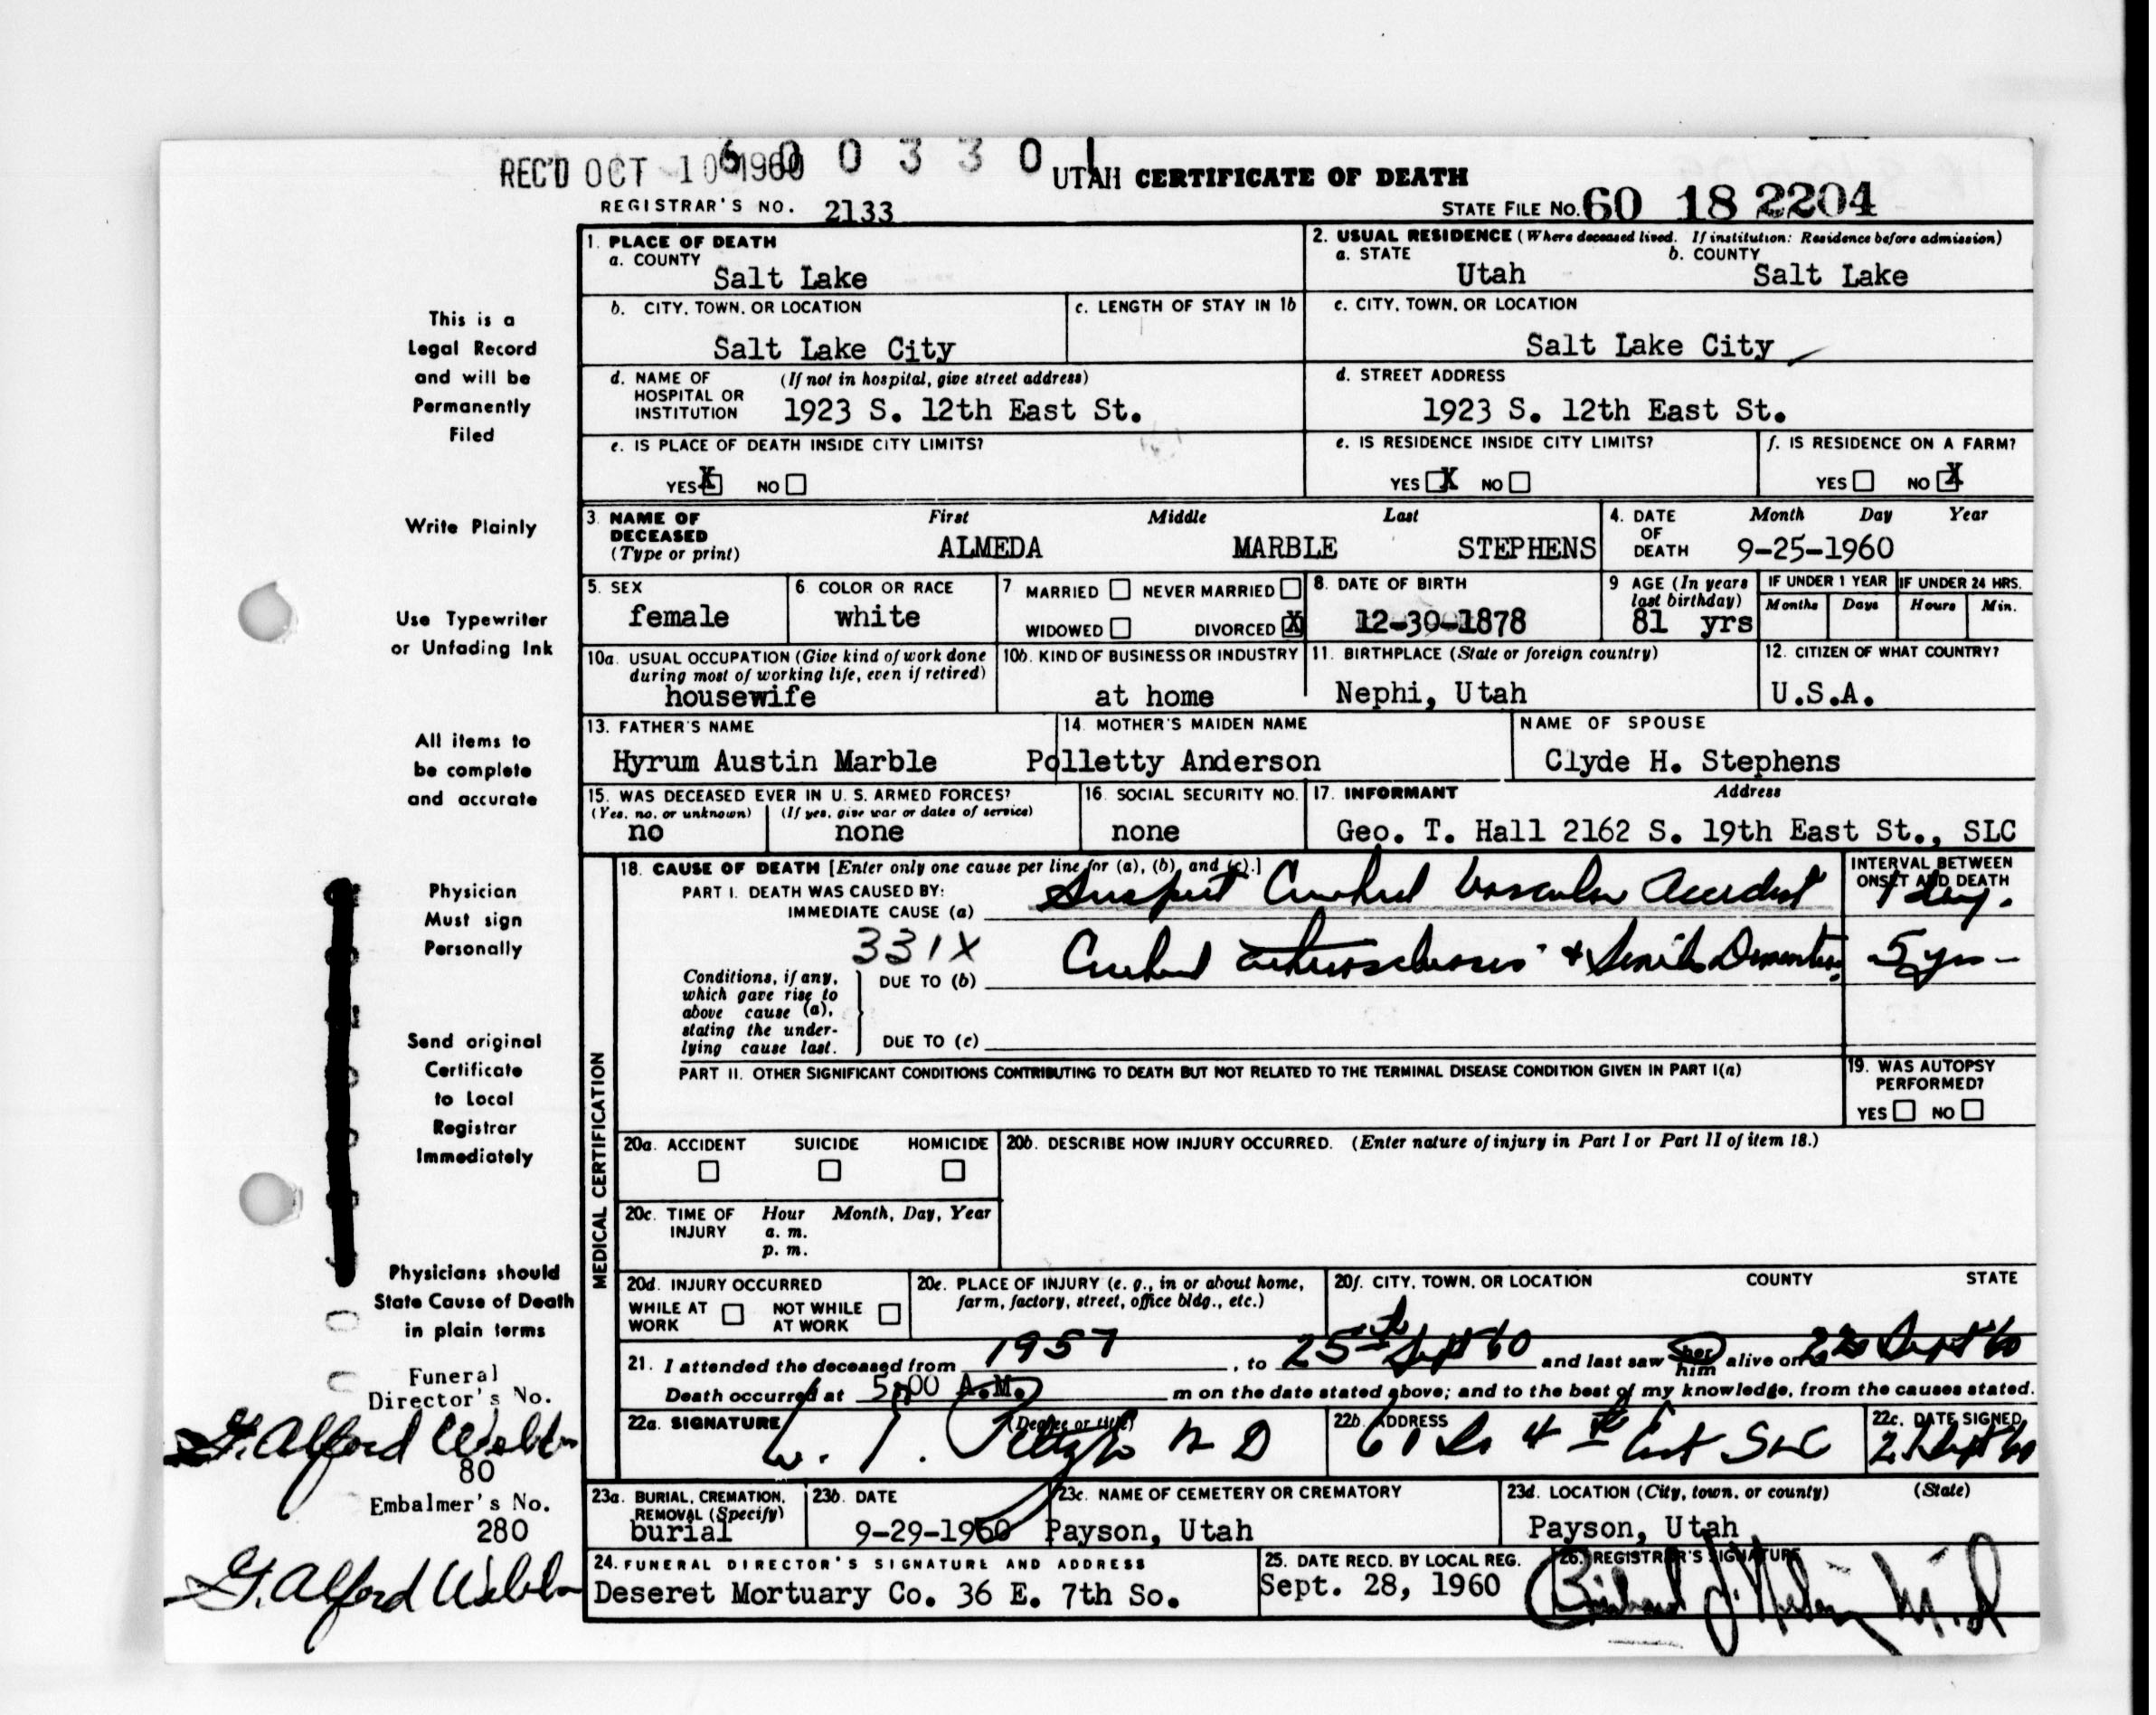 REC'D OCT 10 1960 6 0 0 3 3 0 1
UTAH CERTIFICATE OF DEATH
REGISTRAR'S NO. 2133
STATE FILE No. 60 18 2204
1. PLACE OF DEATH
a. COUNTY
Salt Lake
2. USUAL RESIDENCE (Where deceased lived. If institution: Residence before admission)
a. STATE b. COUNTY
Utah Salt Lake
b. CITY, TOWN, OR LOCATION c. LENGTH OF STAY IN 1b
Salt Lake City
c. CITY, TOWN, OR LOCATION
Salt Lake City
d. NAME OF (If not in hospital, give street address)
HOSPITAL OR
INSTITUTION 1923 S. 12th East St.
d. STREET ADDRESS
1923 S. 12th East St.
e. IS PLACE OF DEATH INSIDE CITY LIMITS?
YES X NO
e. IS RESIDENCE INSIDE CITY LIMITS?
YES X NO
f. IS RESIDENCE ON A FARM?
YES NO X
3. NAME OF First Middle Last
DECEASED
(Type or print) ALMEDA MARBLE STEPHENS
4. DATE Month Day Year
OF
DEATH 9-25-1960
5. SEX
female
6. COLOR OR RACE
white
7 MARRIED NEVER MARRIED
WIDOWED DIVORCED X
8. DATE OF BIRTH
12-30-1878
9 AGE (In years
last birthday)
81 yrs
IF UNDER 1 YEAR IF UNDER 24 HRS.
Months Days Hours Min.
10a. USUAL OCCUPATION (Give kind of work done
during most of working life, even if retired)
housewife
10b. KIND OF BUSINESS OR INDUSTRY
at home
11. BIRTHPLACE (State or foreign country)
Nephi, Utah
12. CITIZEN OF WHAT COUNTRY?
U.S.A.
13. FATHER'S NAME
Hyrum Austin Marble
14. MOTHER'S MAIDEN NAME
Polletty Anderson
NAME OF SPOUSE
Clyde H. Stephens
15. WAS DECEASED EVER IN U. S. ARMED FORCES?
(Yes, no, or unknown) (If yes, give war or dates of service)
no none
16. SOCIAL SECURITY NO.
none
17. INFORMANT Address
Geo. T. Hall 2162 S. 19th East St., SLC
MEDICAL CERTIFICATION
18. CAUSE OF DEATH [Enter only one cause per line for (a), (b), and (c).]
PART I. DEATH WAS CAUSED BY:
IMMEDIATE CAUSE (a) Suspect Cerebral Vascular Accident
INTERVAL BETWEEN
ONSET AND DEATH
1 day.
331X
Conditions, if any,
which gave rise to
above cause (a),
stating the under-
lying cause last.
DUE TO (b) Cerebral arteriosclerosis & Senile Dementia 5 yrs
DUE TO (c)
PART II. OTHER SIGNIFICANT CONDITIONS CONTRIBUTING TO DEATH BUT NOT RELATED TO THE TERMINAL DISEASE CONDITION GIVEN IN PART I(a)
19. WAS AUTOPSY
PERFORMED?
YES NO
20a. ACCIDENT SUICIDE HOMICIDE
20b. DESCRIBE HOW INJURY OCCURRED. (Enter nature of injury in Part I or Part II of item 18.)
20c. TIME OF Hour Month, Day, Year
INJURY a. m.
p. m.
20d. INJURY OCCURRED
WHILE AT NOT WHILE
WORK AT WORK
20e. PLACE OF INJURY (e. g., in or about home,
farm, factory, street, office bldg., etc.)
20f. CITY, TOWN, OR LOCATION COUNTY STATE
21. I attended the deceased from 1957, to 25th Sept 60 and last saw her him alive on Sept 60
Death occurred at 5:00 A.M. m on the date stated above; and to the best of my knowledge, from the causes stated.
22a. SIGNATURE (Degree or title)
22b. ADDRESS
61 So 4th East SLC
22c. DATE SIGNED
Sept 60
23a. BURIAL, CREMATION,
REMOVAL (Specify)
burial
23b. DATE
9-29-1960
23c. NAME OF CEMETERY OR CREMATORY
Payson, Utah
23d. LOCATION (City, town, or county) (State)
Payson, Utah
24. FUNERAL DIRECTOR'S SIGNATURE AND ADDRESS
Deseret Mortuary Co. 36 E. 7th So.
25. DATE RECD. BY LOCAL REG.
Sept. 28, 1960
26. REGISTRAR'S SIGNATURE
This is a
Legal Record
and will be
Permanently
Filed
Write Plainly
Use Typewriter
or Unfading Ink
All items to
be complete
and accurate
Physician
Must sign
Personally
Send original
Certificate
to Local
Registrar
Immediately
Physicians should
State Cause of Death
in plain terms
Funeral
Director's No.
G. Alford Webb
80
Embalmer's No.
280
G. Alford Webb